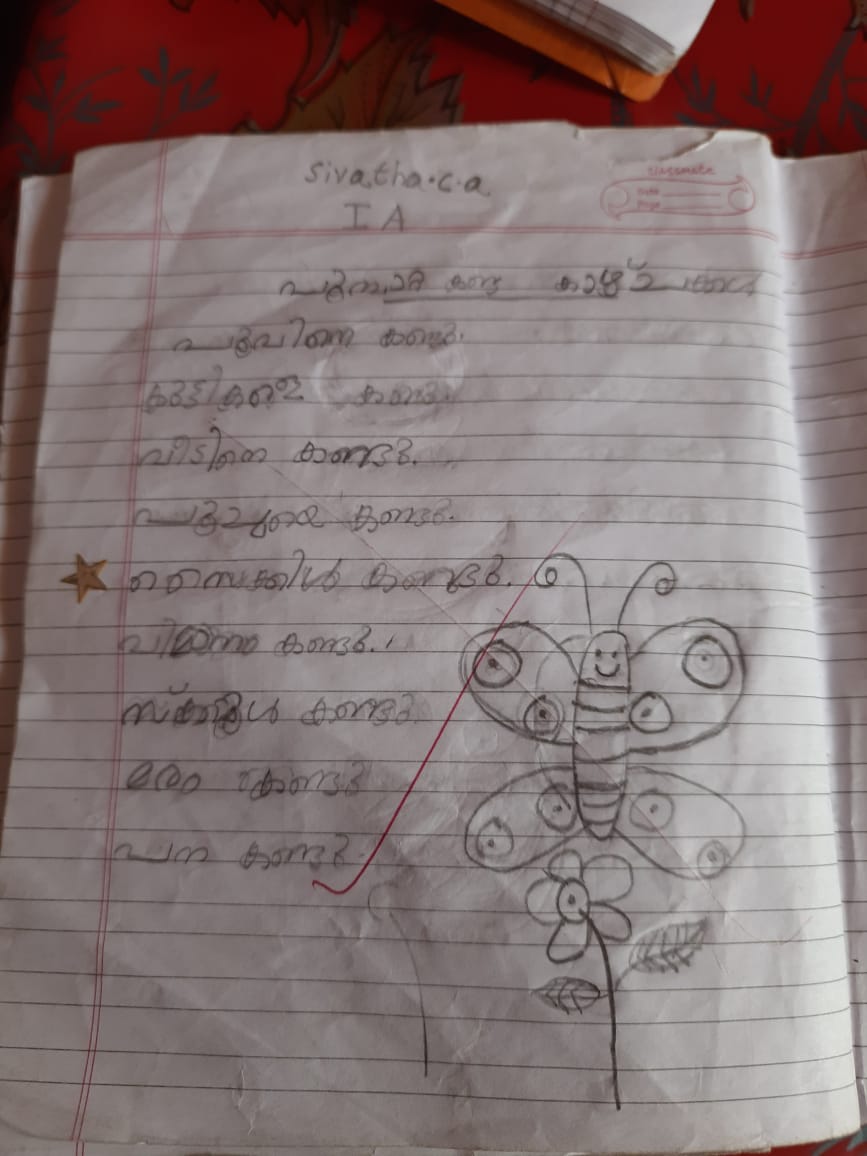 Sivatha.c.a
I A
classmate
Date
Page
പൂമ്പാറ്റ കണ്ട കാഴ്ചകൾ
പൂവിനെ കണ്ടു.
കുട്ടികളെ കണ്ടു.
വീടിനെ കണ്ടു.
കണ്ടു.
സൈക്കിൾ കണ്ടു.
കണ്ടു.
സ്കൂൾ കണ്ടു.
മരം കണ്ടു
പന കണ്ടു.